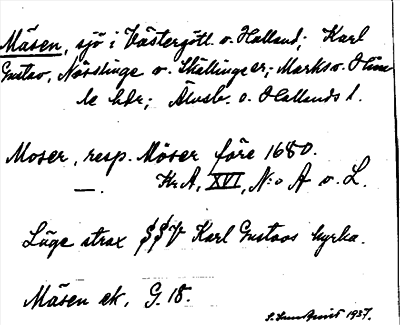 Mäsen, sjö i Västergötl. o. Halland; Karl
Gustav, Nösslinge o. Skällinge sr; Marks o. Himle
hdr; Älvsb. o. Hallands l.
Moser, resp. Möser före 1680.
— . Kr. A, XVI, N:o A o. L.
Läge strax SSV Karl Gustavs kyrka.
Mäsen ek. G. 18.
1937.